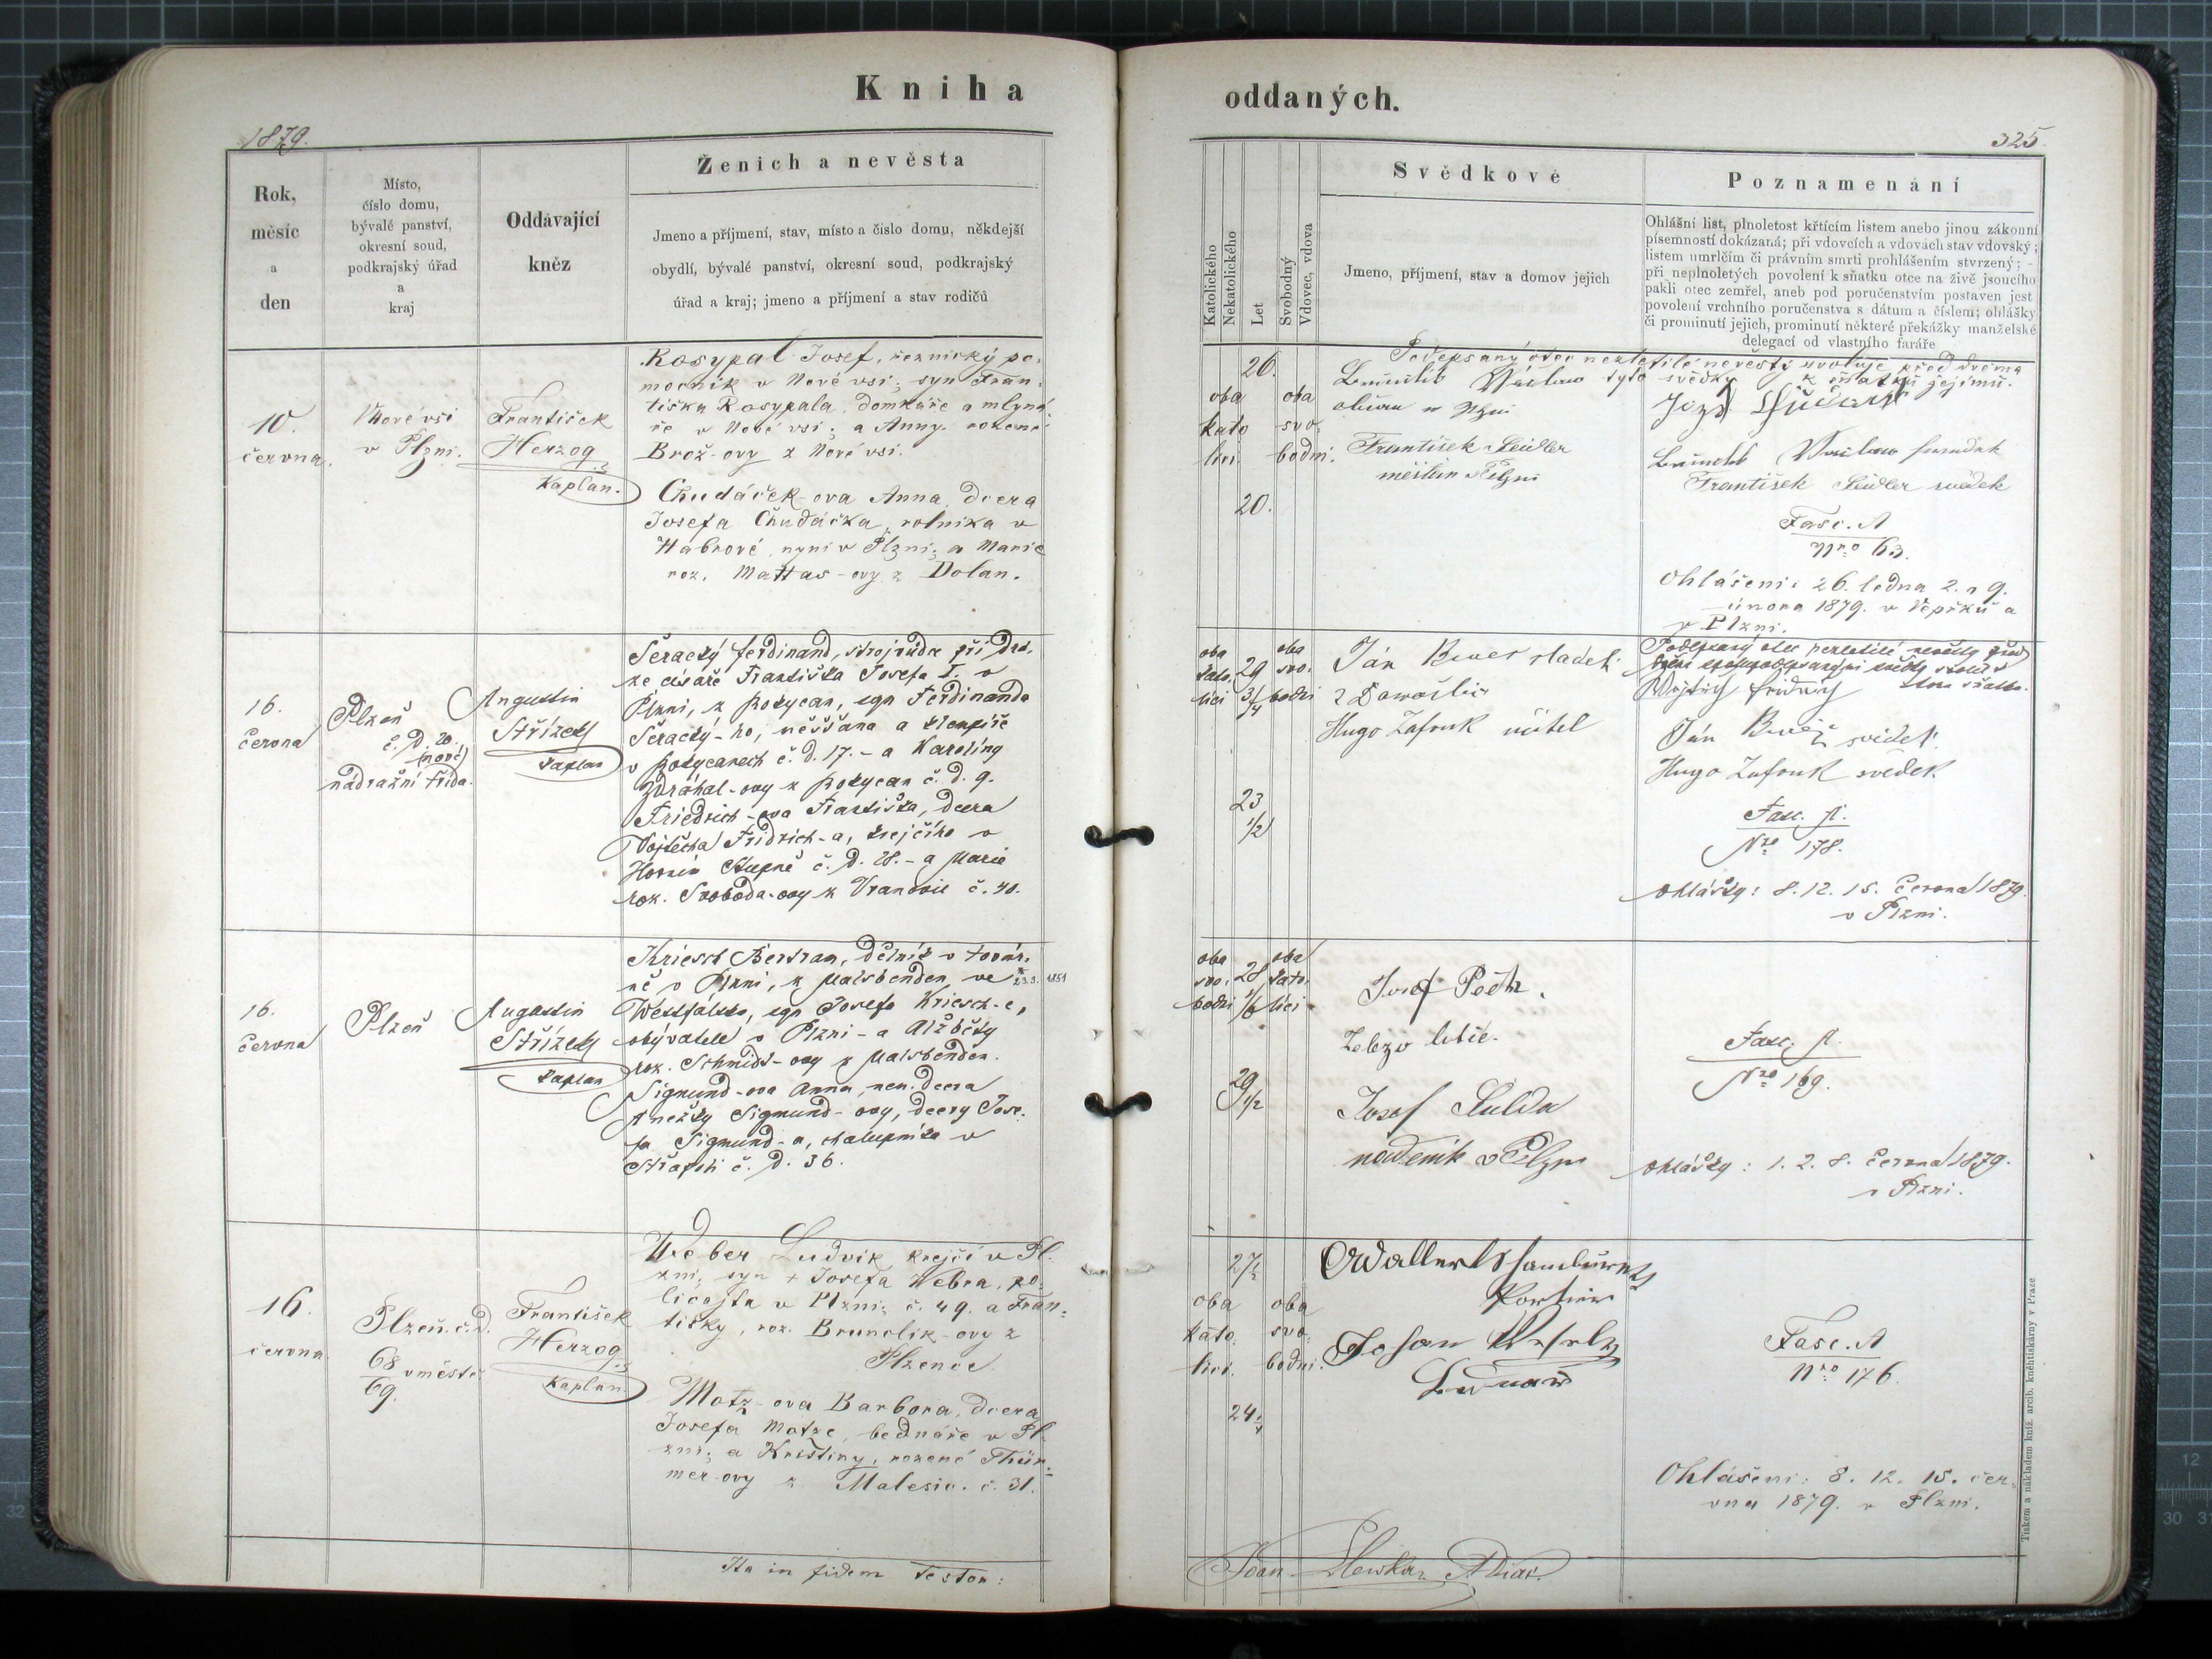 Kniha
oddaných.
1879.
325
Rok,
měsíc
a
den
Místo,
číslo domu,
bývalé panství,
okresní soud,
podkrajský úřad
a
kraj
Oddávající
kněz
Ženich a nevěsta
Jmeno a příjmení, stav, místo a číslo domu, někdejší
obydlí, bývalé panství, okresní soud, podkrajský
úřad a kraj; jmeno a příjmení a stav rodičů
Katolického
Nekatolického
Let
Svobodný
Vdovec, vdova
Svědkové
Jmeno, příjmení, stav a domov jejich
Poznamenání
Ohlášní list, plnoletost křticím listem anebo jinou zákonní
písemností dokázaná; při vdovcích a vdovách stav vdovský;
listem umrlčím či právním smrti prohlášením stvrzený; -
při neplnoletých povolení k sňatku otce na živě jsoucího
pakli otec zemřel, aneb pod poručenstvím postaven jest
povolení vrchního poručenstva s dátum a číslem; ohlášky
či prominutí jejich, prominutí některé překážky manželské
delegací od vlastního faráře
10.
června.
v Plzni.
František
Herzog
Kaplan.
Rosypal Josef, řeznický po-
mocník v Nové vsi; syn Fran-
tiška Rosypala, domkáře a mlyná-
ře v Nové vsi; a Anny rozené
Brož-ovy z Nové vsi.
Chudáček-ova Anna, dcera
Josefa Chudáčka, rolníka v
Habrové, nyní v Plzni; a Marie
roz. Mattas-ovy z Dolan.
26.
oba
kato
lici.
oba
svo-
bodni.
20.
Podepsaný otec nezletilé nevěsty svoluje před dvěma
Václav tyto svědky k sňatku jejímu.
František Seidler
měštan v Plzni
Václav
František Seidler svědek
Fasc. A
Nro 63.
Ohlášení: 26. ledna 2. a 9.
února 1879. v Vepřku a
v Plzni.
16.
června
Plzeň
č. d. 20.
(nové)
nádražní třída.
Augustin
Střízek
kaplan
Šeracký Ferdinand, strojvůdce při drá-
ze císaře Františka Josefa I. v
Plzni, z Rokycan, syn Ferdinanda
Šeracký-ho, měšťana a klempíře
v Rokycanech č. d. 17. - a Karolíny
Zdráhal-ovy z Rokycan č. d. 9.
Friedrich-ova Františka, dcera
Vojtěcha Fridrich-a, krejčího v
Horním Stupně č. d. 28. - a Marie
roz. Svoboda-ovy z Vranovic č. 40.
oba
kato-
lici
29
3/4
oba
svo-
bodni
23
1/2
Ján
sladek
Hugo Zafouk učitel
Ján
svědek.
Hugo Zafouk svědek
Fasc. A.
Nro 178.
Ohlášky: 8. 12. 15. června 1879.
v Plzni.
16.
června
Plzeň
Augustin
Střízek
kaplan
Kriesch Bertram, dělník v továr-
ně v Plzni, z Malsbenden ve
1851
Westfálsku, syn Josefa Kriesch-e,
obývatele v Plzni - a Alžběty
roz. Schmidt-ovy z Malsbenden.
Sigmund-ova Anna, nem. dcera
Anežky Sigmund-ovy, dcery Jose-
fa Sigmund-a, chalupníka v
č. d. 36.
oba
svo-
bodni
28
1/6
oba
kato-
lici
29
1/2
Josef Pech.
Josef Šulda
nádeník v Plzni
Fasc. A.
Nro 169.
Ohlášky: 1. 2. 8. června 1879.
v Plzni.
16.
června
Plzeň. č. d.
68
69.
v městě
František
Herzog
Kaplan
Weber Ludvik krejčí v Pl-
zni, syn + Josefa Webra, po-
licajta v Plzni; č. 49. a Fran-
tišky, roz. Brunclik-ovy z
Plzence.
Motz-ova Barbora, dcera
Josefa Motze, bednáře v Pl-
zni; a Kristiny, rozené Thür-
mer-ovy z Malesic. č. 31.
oba
kato.
lici.
oba
svo-
bodni.
Portier
Fasc. A
Nro 176.
Ohlášení: 8. 12. 15. čer-
vna 1879. v Plzni.
Ita in fidem testor:
Tiskem a nákladem kníž. arcib. knihtiskárny v Praze